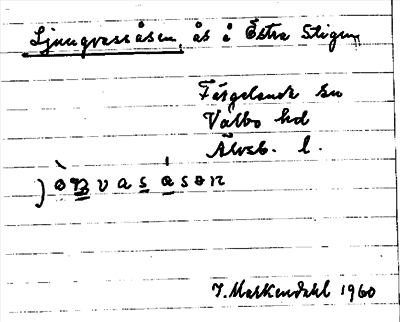 Ljungvassåsen, ås i Östra Stigen
Färgelanda sn
Valbo hd
Älvsb. l.
J. Markendahl 1960